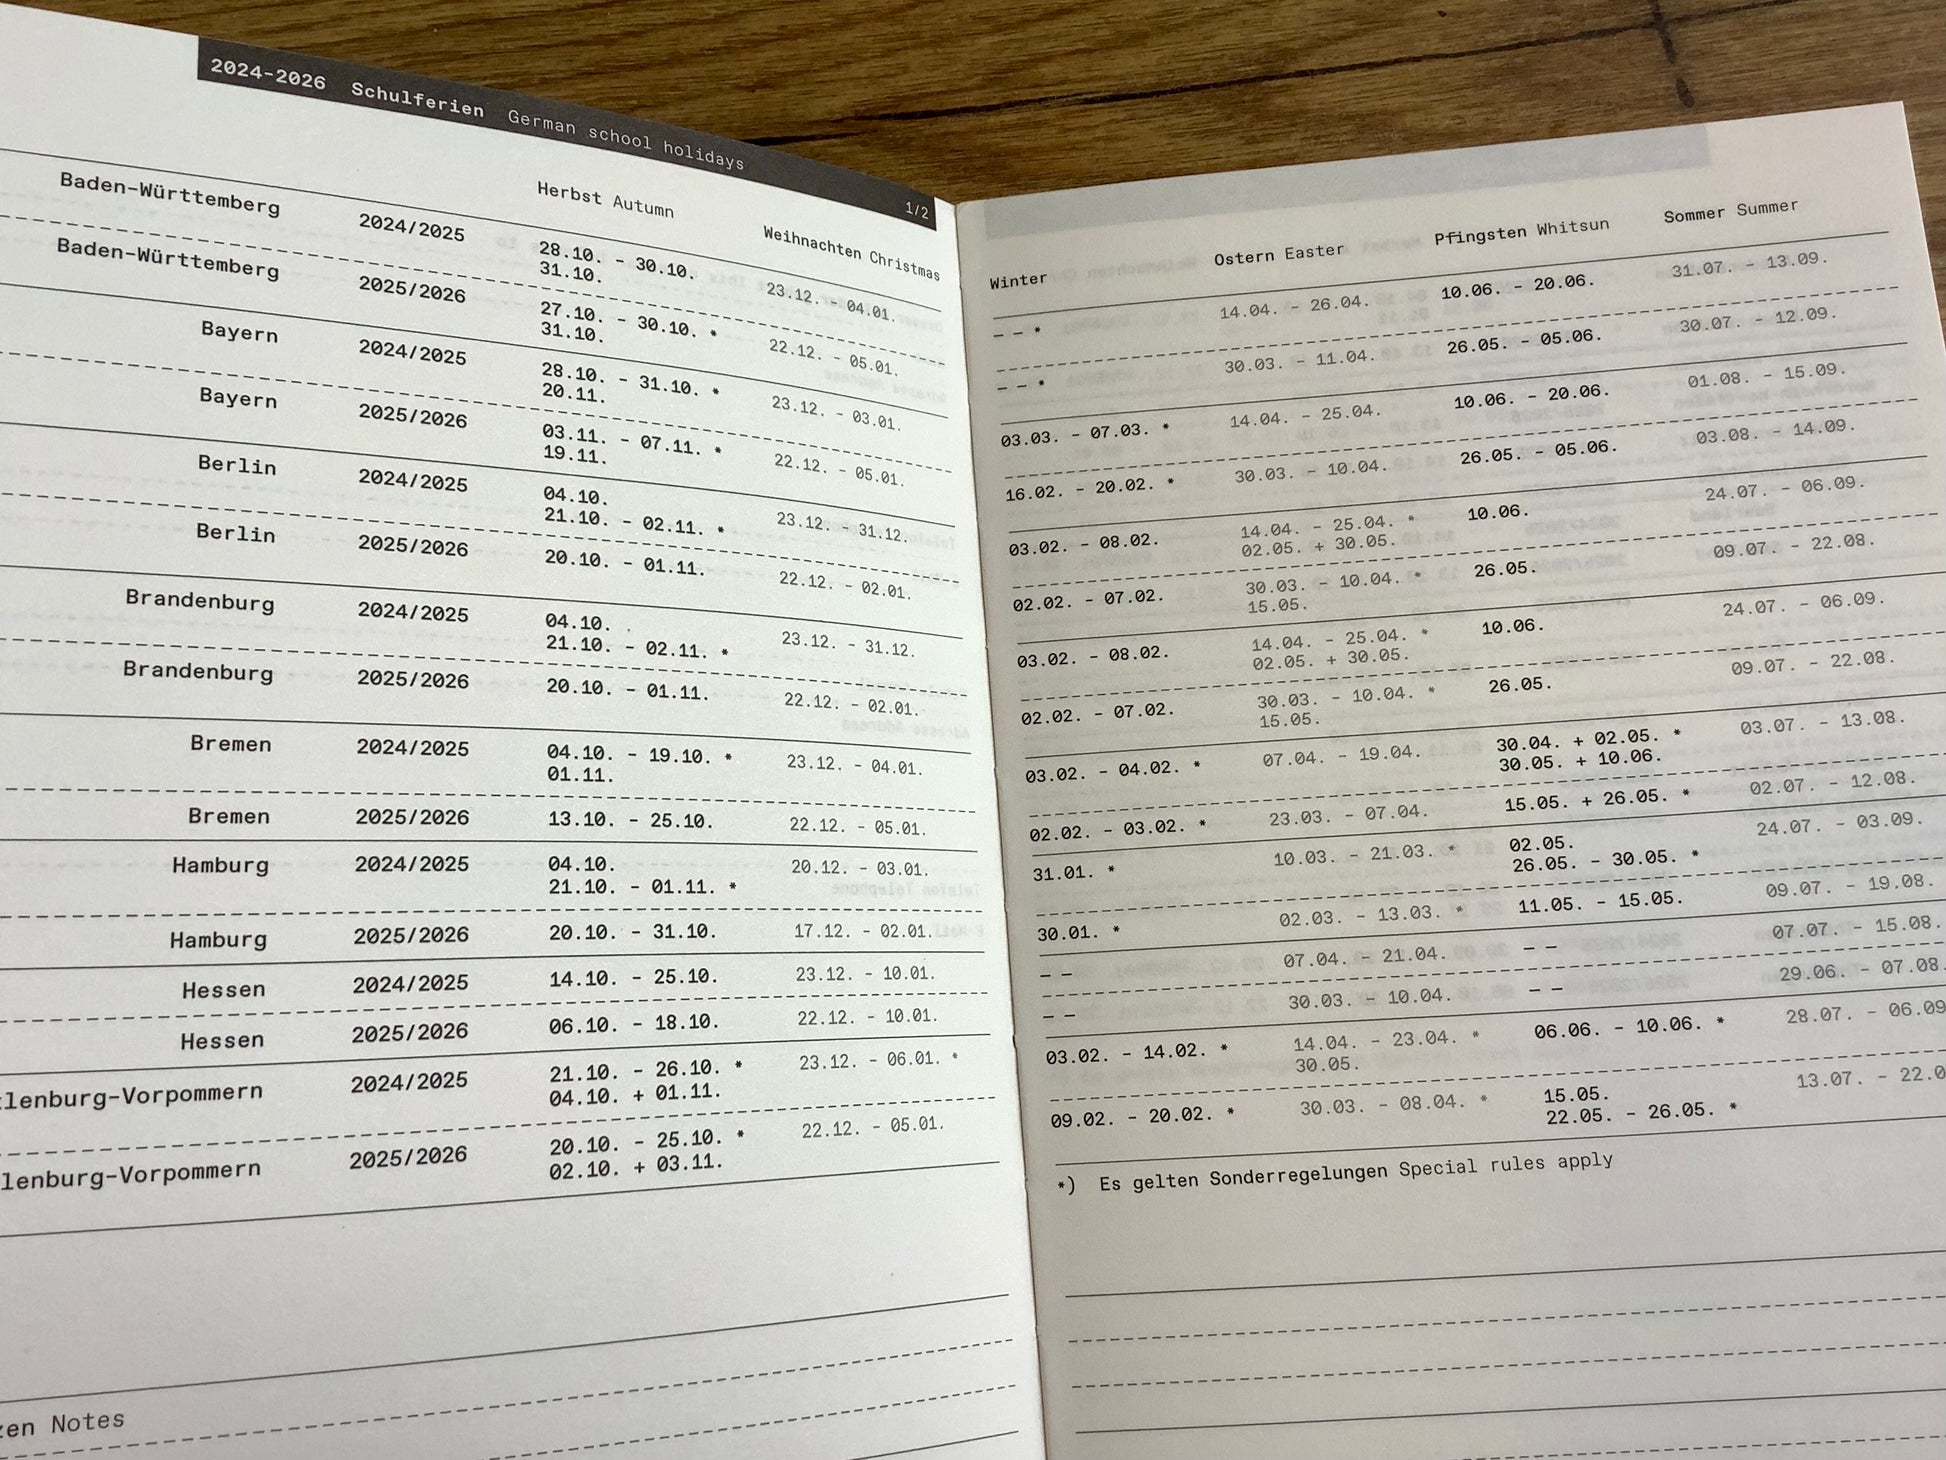 2024-2026 Schulferien German school holidays 1/2
Herbst Autumn Weihnachten Christmas Winter Ostern Easter Pfingsten Whitsun Sommer Summer
Baden-Württemberg 2024/2025 28.10. - 30.10. 23.12. - 04.01. - - * 14.04. - 26.04. 10.06. - 20.06. 31.07. - 13.09.
31.10.
Baden-Württemberg 2025/2026 27.10. - 30.10. * 22.12. - 05.01. - - * 30.03. - 11.04. 26.05. - 05.06. 30.07. - 12.09.
31.10.
Bayern 2024/2025 28.10. - 31.10. * 23.12. - 03.01. 03.03. - 07.03. * 14.04. - 25.04. 10.06. - 20.06. 01.08. - 15.09.
20.11.
Bayern 2025/2026 03.11. - 07.11. * 22.12. - 05.01. 16.02. - 20.02. * 30.03. - 10.04. 26.05. - 05.06. 03.08. - 14.09.
19.11.
Berlin 2024/2025 04.10. 23.12. - 31.12. 03.02. - 08.02. 14.04. - 25.04. * 10.06. 24.07. - 06.09.
21.10. - 02.11. * 02.05. + 30.05.
Berlin 2025/2026 20.10. - 01.11. 22.12. - 02.01. 02.02. - 07.02. 30.03. - 10.04. * 26.05. 09.07. - 22.08.
15.05.
Brandenburg 2024/2025 04.10. 23.12. - 31.12. 03.02. - 08.02. 14.04. - 25.04. * 10.06. 24.07. - 06.09.
21.10. - 02.11. * 02.05. + 30.05.
Brandenburg 2025/2026 20.10. - 01.11. 22.12. - 02.01. 02.02. - 07.02. 30.03. - 10.04. * 26.05. 09.07. - 22.08.
15.05.
Bremen 2024/2025 04.10. - 19.10. * 23.12. - 04.01. 03.02. - 04.02. * 07.04. - 19.04. 30.04. + 02.05. * 03.07. - 13.08.
01.11. 30.05. + 10.06.
Bremen 2025/2026 13.10. - 25.10. 22.12. - 05.01. 02.02. - 03.02. * 23.03. - 07.04. 15.05. + 26.05. * 02.07. - 12.08.
Hamburg 2024/2025 04.10. 20.12. - 03.01. 31.01. * 10.03. - 21.03. * 02.05. 24.07. - 03.09.
21.10. - 01.11. * 26.05. - 30.05. *
Hamburg 2025/2026 20.10. - 31.10. 17.12. - 02.01. 30.01. * 02.03. - 13.03. * 11.05. - 15.05. 09.07. - 19.08.
Hessen 2024/2025 14.10. - 25.10. 23.12. - 10.01. - - 07.04. - 21.04. - - 07.07. - 15.08.
Hessen 2025/2026 06.10. - 18.10. 22.12. - 10.01. - - 30.03. - 10.04. - - 29.06. - 07.08.
lenburg-Vorpommern 2024/2025 21.10. - 26.10. * 23.12. - 06.01. * 03.02. - 14.02. * 14.04. - 23.04. * 06.06. - 10.06. * 28.07. - 06.09
04.10. + 01.11. 30.05.
lenburg-Vorpommern 2025/2026 20.10. - 25.10. * 22.12. - 05.01. 09.02. - 20.02. * 30.03. - 08.04. * 15.05. 13.07. - 22.0
02.10. + 03.11. 22.05. - 26.05. *
*) Es gelten Sonderregelungen Special rules apply
zen Notes